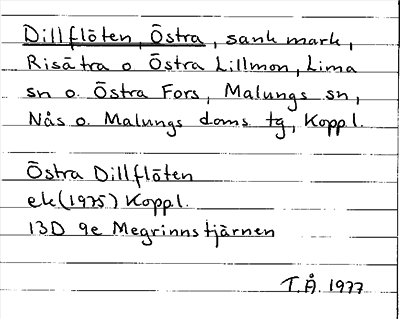 Dillflöten, Östra, sank mark,
Risätra o Östra Lillmon, Lima
sn o. Östra Fors, Malungs sn,
Nås o. Malungs doms tg, Koppl.
Östra Dillflöten
ek (1975) Koppl.
13D 9e Megrinnstjärnen
T.Å. 1977